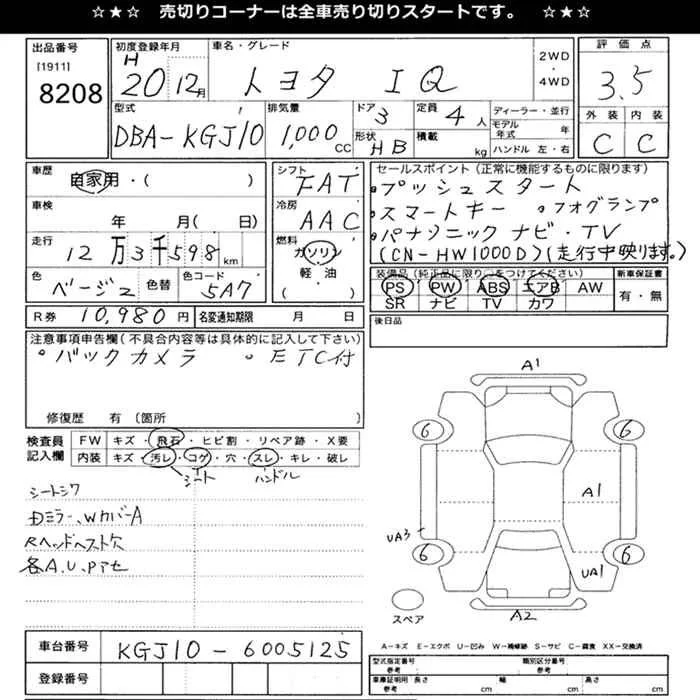 ☆★☆ 売切りコーナーは全車売り切りスタートです。 ☆★☆
出品番号
[1911]
8208
初度登録年月
H
20 12月
車名・グレード
トヨタ IQ
2WD
・
4WD
評価点
3.5
外装 内装
C C
型式
DBA-KGJ10
排気量
1,000 CC
ドア 3
形状 HB
定員 4 人
積載 kg
ディーラー・並行
モデル年式 年
ハンドル 左・右
車歴
自家用・( )
車検
年 月( 日)
走行
12万3千598km
色
ベージュ 色替
色コード
5A7
シフト
FAT
冷房
AAC
燃料
ガソリン
軽・油
( )
セールスポイント(正常に機能するものに限ります)
・プッシュスタート
・スマートキー ・フォグランプ
・パナソニック ナビ・TV
(CN-HW1000D)(走行中映ります。)
装備品(純正品に限り○をつけてください)
PS PW ABS エアB AW
SR ナビ TV カワ
新車保証書
有・無
R券 10,980円
名変通知期限 月 日
後日品
注意事項申告欄(不具合内容等は具体的に記入して下さい)
・バックカメラ ・ETC付
修復歴 有 (箇所
検査員記入欄
FW キズ・飛石・ヒビ割・リペア跡・X要
内装 キズ・汚レ・コゲ・穴・スレ・キレ・破レ
シート
ハンドル
シートシワ
ドミラー、WカバーA
Rヘッドヘフスト欠
各A.U.Pアセ
A1
6
6
A1
UA3
6
6
UA1
スペア
A2
車台番号
KGJ10-6005125
登録番号
A-キズ E-エクボ U-凹み W-補修跡 S-サビ C-腐食 XX-交換済
型式指定番号
参考
類別区分番号
参考
車庫証明用
参考
長さ cm
幅 cm
高さ cm